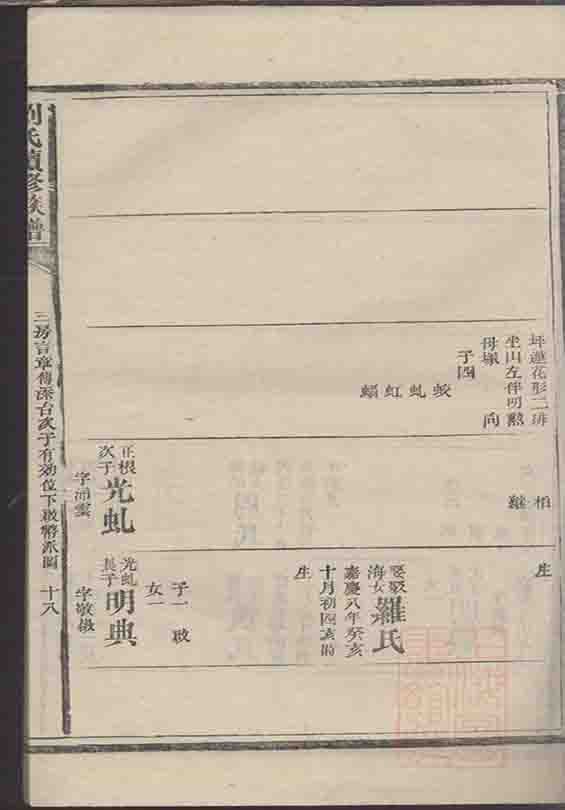 坪蓮花形二排
坐山左伴明勲
母塚　　　向
子四
蛟
虬
虹
蝠
柏
繼
正根
次子
光虬
字浦雲
生
娶駁
海女
羅氏
嘉慶八年癸亥
十月初四亥時
生
子一　啟
女一
光虬
長子
明典
字敬徽
劉氏續修族譜
三房言章傳深台次子有効位下啟將派圖　十八